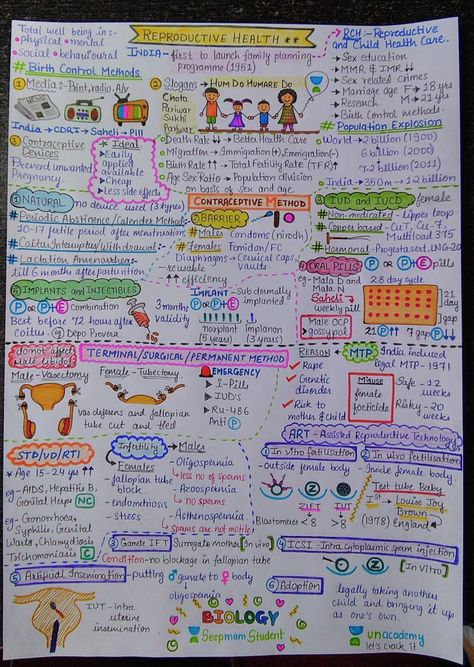 Total well being in:-
• physical • mental
• social • behavioural
REPRODUCTIVE HEALTH
INDIA - first to launch family planning
programme (1951)
RCH :- Reproductive
and Child Health Care.
→ Sex education
→ MMR & IMR ↓↓
→ Sex related crimes
→ Marriage age F → 18 yrs
M → 21 yrs
→ Research
→ Birth Control methods
# Birth Control Methods
① Media :- Print, radio, A/v
India → CDRI → Saheli → Pill
② Slogans → HUM DO HUMARE DO
Chota
Parivar
Sukhi
Parivar
# Population Explosion
World → 2 billion (1900)
6 billion (2000)
7.2 billion (2011)
India → 350 m → 1.2 billion
③ Contraceptive
Devices
Prevent unwanted
Pregnancy
* Ideal
→ Easily
applied
available
→ Cheap
→ Less side effects
→ Death Rate ↓↓ → Better Health Care
→ Migration → Immigration(+), Emmigration(-)
→ Birth Rate ↑↑ → Total Fertility Rate (TFR)
→ Age Sex Ratio → Population division
on basis of sex and age.
CONTRACEPTIVE METHOD
① NATURAL no device used (3 types)
# Periodic Abstinence/Calender Method
10-17 fertile period after menstruation
# Coitus Interruptus/Withdrawal:-
# Lactation Amenorrhea:-
till 6 months after parturition
② BARRIER
# Males Condoms (nirodh)
# Females Femidon/FC
Diaphragms → Cervical Caps,
vaults
→ reusable
↑↑ efficiency
③ IUD and IUCD female
# Non-medicated - lippes loop
# Copper based - CuT, Cu-7,
Multiload 375
# Hormonal - Progestasert, LNG-20
④ ORAL PILLS P or P+E pills
eg - Mala D and
Mala N
Saheli →
weekly pill
Male OCP
→ gossypol
28 day cycle
21 day
1 gap
21 P ↑↑ 7 gap P ↓↓
⑤ IMPLANTS AND INJECTIBLES
P or P+E Combination
Best before 72 hours after
coitus. eg Depo Provera
3 months
validity
IMPLANT Sub dermally
P or P+E implanted
norplant
(5 years)
implanon
(3 years)
do not affect
male libido
TERMINAL/SURGICAL/PERMANENT METHOD
Male-Vasectomy
Female - Tubectomy
Vas deferens and fallopian
tube cut and tied
EMERGENCY
→ i-Pills
→ IUD's
→ Ru-486
Anti P
REASON
→ Rape
→ Genetic
disorder
→ Risk to
mother & child
MTP India induced
legal MTP - 1971
Misuse
female
foeticide
Safe - 12
weeks
Risky - 20
weeks
STD/VD/RTI
* Age 15-24 yrs ↑↑
eg - AIDS, Hepatitis B,
Genital Herpes NC
eg - Gonorrhoea,
Syphilis, Genital
Warts, Chlamydiosis
Trichomoniasis C
Infertility
Females
- fallopian tube
block
- endometriosis
- stress
→ Males
- Oligospermia
→ less no of sperms
- Azoospermia
→ no sperms
- Asthenospermia
→ sperms are not motile
ART - Assisted Reproductive Technology
① In vitro fertilisation
- outside female body
ZIFT IUT
Blastomeres < 8 > 8
② In vivo fertilisation
Inside female body.
Test tube Baby
Ist → Louise Joy
Brown →
(1978) England
③ Gamete IFT Surrogate mother [In vivo]
Condition - no blockage in fallopian tube
④ ICSI - Intra cytoplasmic sperm injection
[In Vitro]
⑤ Artificial Insemination - putting ♂ gamete to ♀ body
↓ oligospermia
IUT - Intra
uterine
insemination
⑥ Adoption legally taking another
child and bringing it up
as one's own.
BIOLOGY
Seepmam Student
unacademy
let's crack it